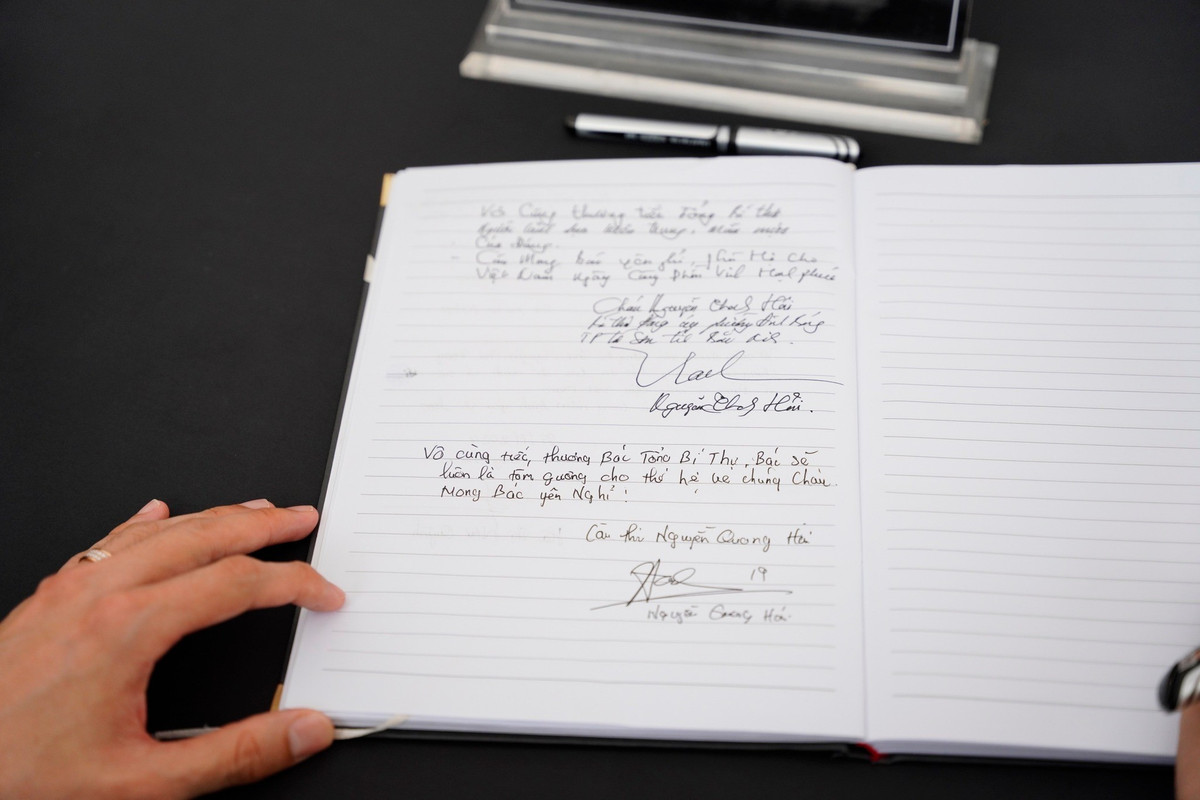 Vô Cùng thương tiếc Tổng Bí thư
Người
Của Đảng.
Cầu Mong bác yên nghỉ, phù Hộ Cho
Việt Nam Ngày Càng phồn Vinh Hạnh phúc
Cháu Nguyễn Hải
Bí thư Đảng ủy phường Đình Bảng
TP Từ Sơn
Nguyễn Hải.
Vô cùng tiếc, thương Bác Tổng Bí Thư, Bác sẽ
luôn là tấm gương cho thế hệ về chúng Cháu.
Mong Bác yên Nghỉ!
Cầu thủ Nguyễn Quang Hải
19
Nguyễn Quang Hải